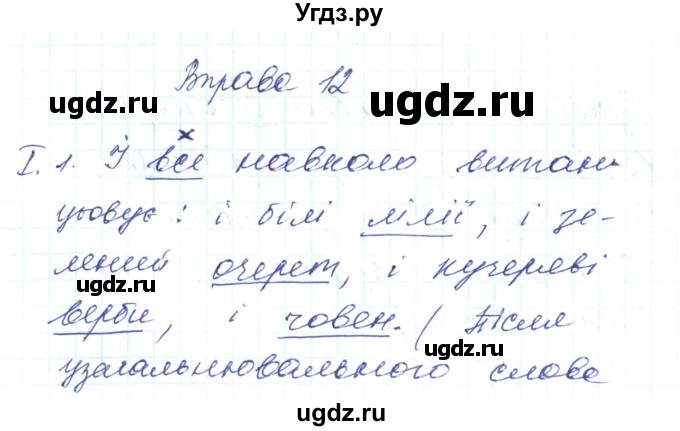 Угдз.ру
Вправа 12
ugdz.ru
x
I. 1. І все навколо витан-
ugdz.ru
цьовує: і білі лілії, і зе-
лений очерет, і кучеряві
ugdz.ru
верби, і човен. (Після
ugdz.ru
узагальнювального слова
ugdz.ru